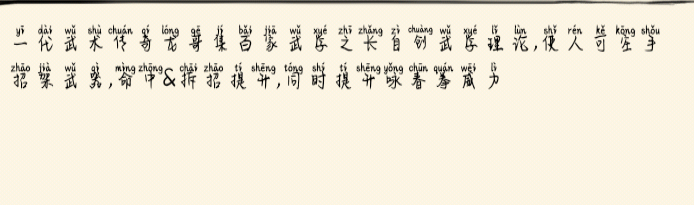 yī dài wǔ shù chuán qí lóng gē jí bǎi jiā wǔ xué zhī zhǎng zì chuàng wǔ xué lǐ lùn shǐ rén kě kōng shǒu
一代武术传奇龙哥集百家武学之长自创武学理论,使人可空手
zhāo jià wǔ qì mìng zhōng chāi zhāo tí shēng tóng shí tí shēng yǒng chūn quán wēi lì
招架武器,命中&拆招提升,同时提升咏春拳威力